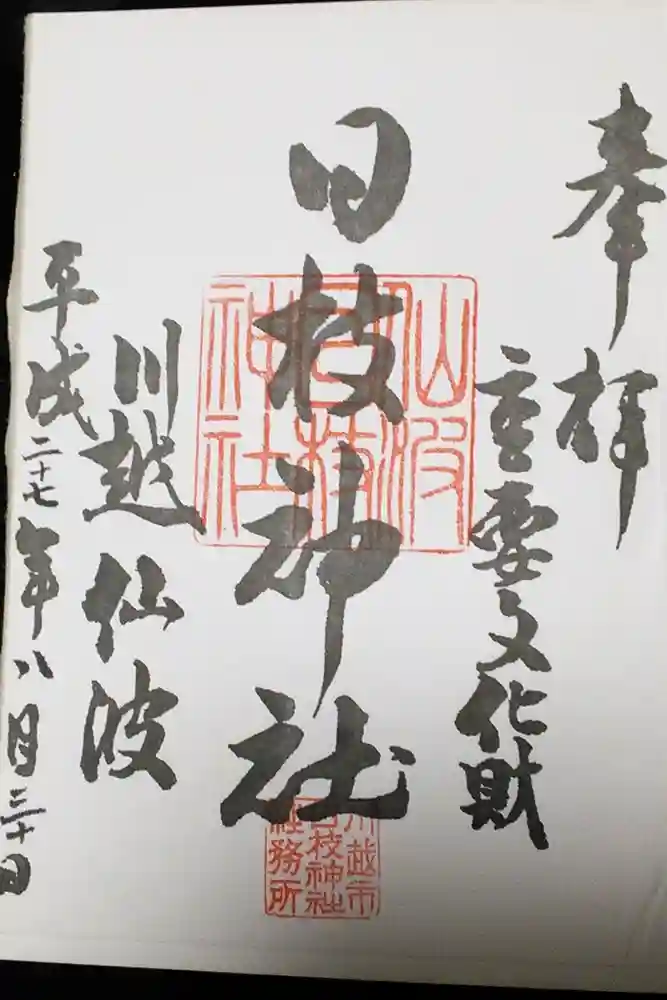 奉拝
重要文化財
日枝神社
仙波
日枝
神社
川越市
日枝神社
社務所
川越仙波
平成二十七年八月三十日